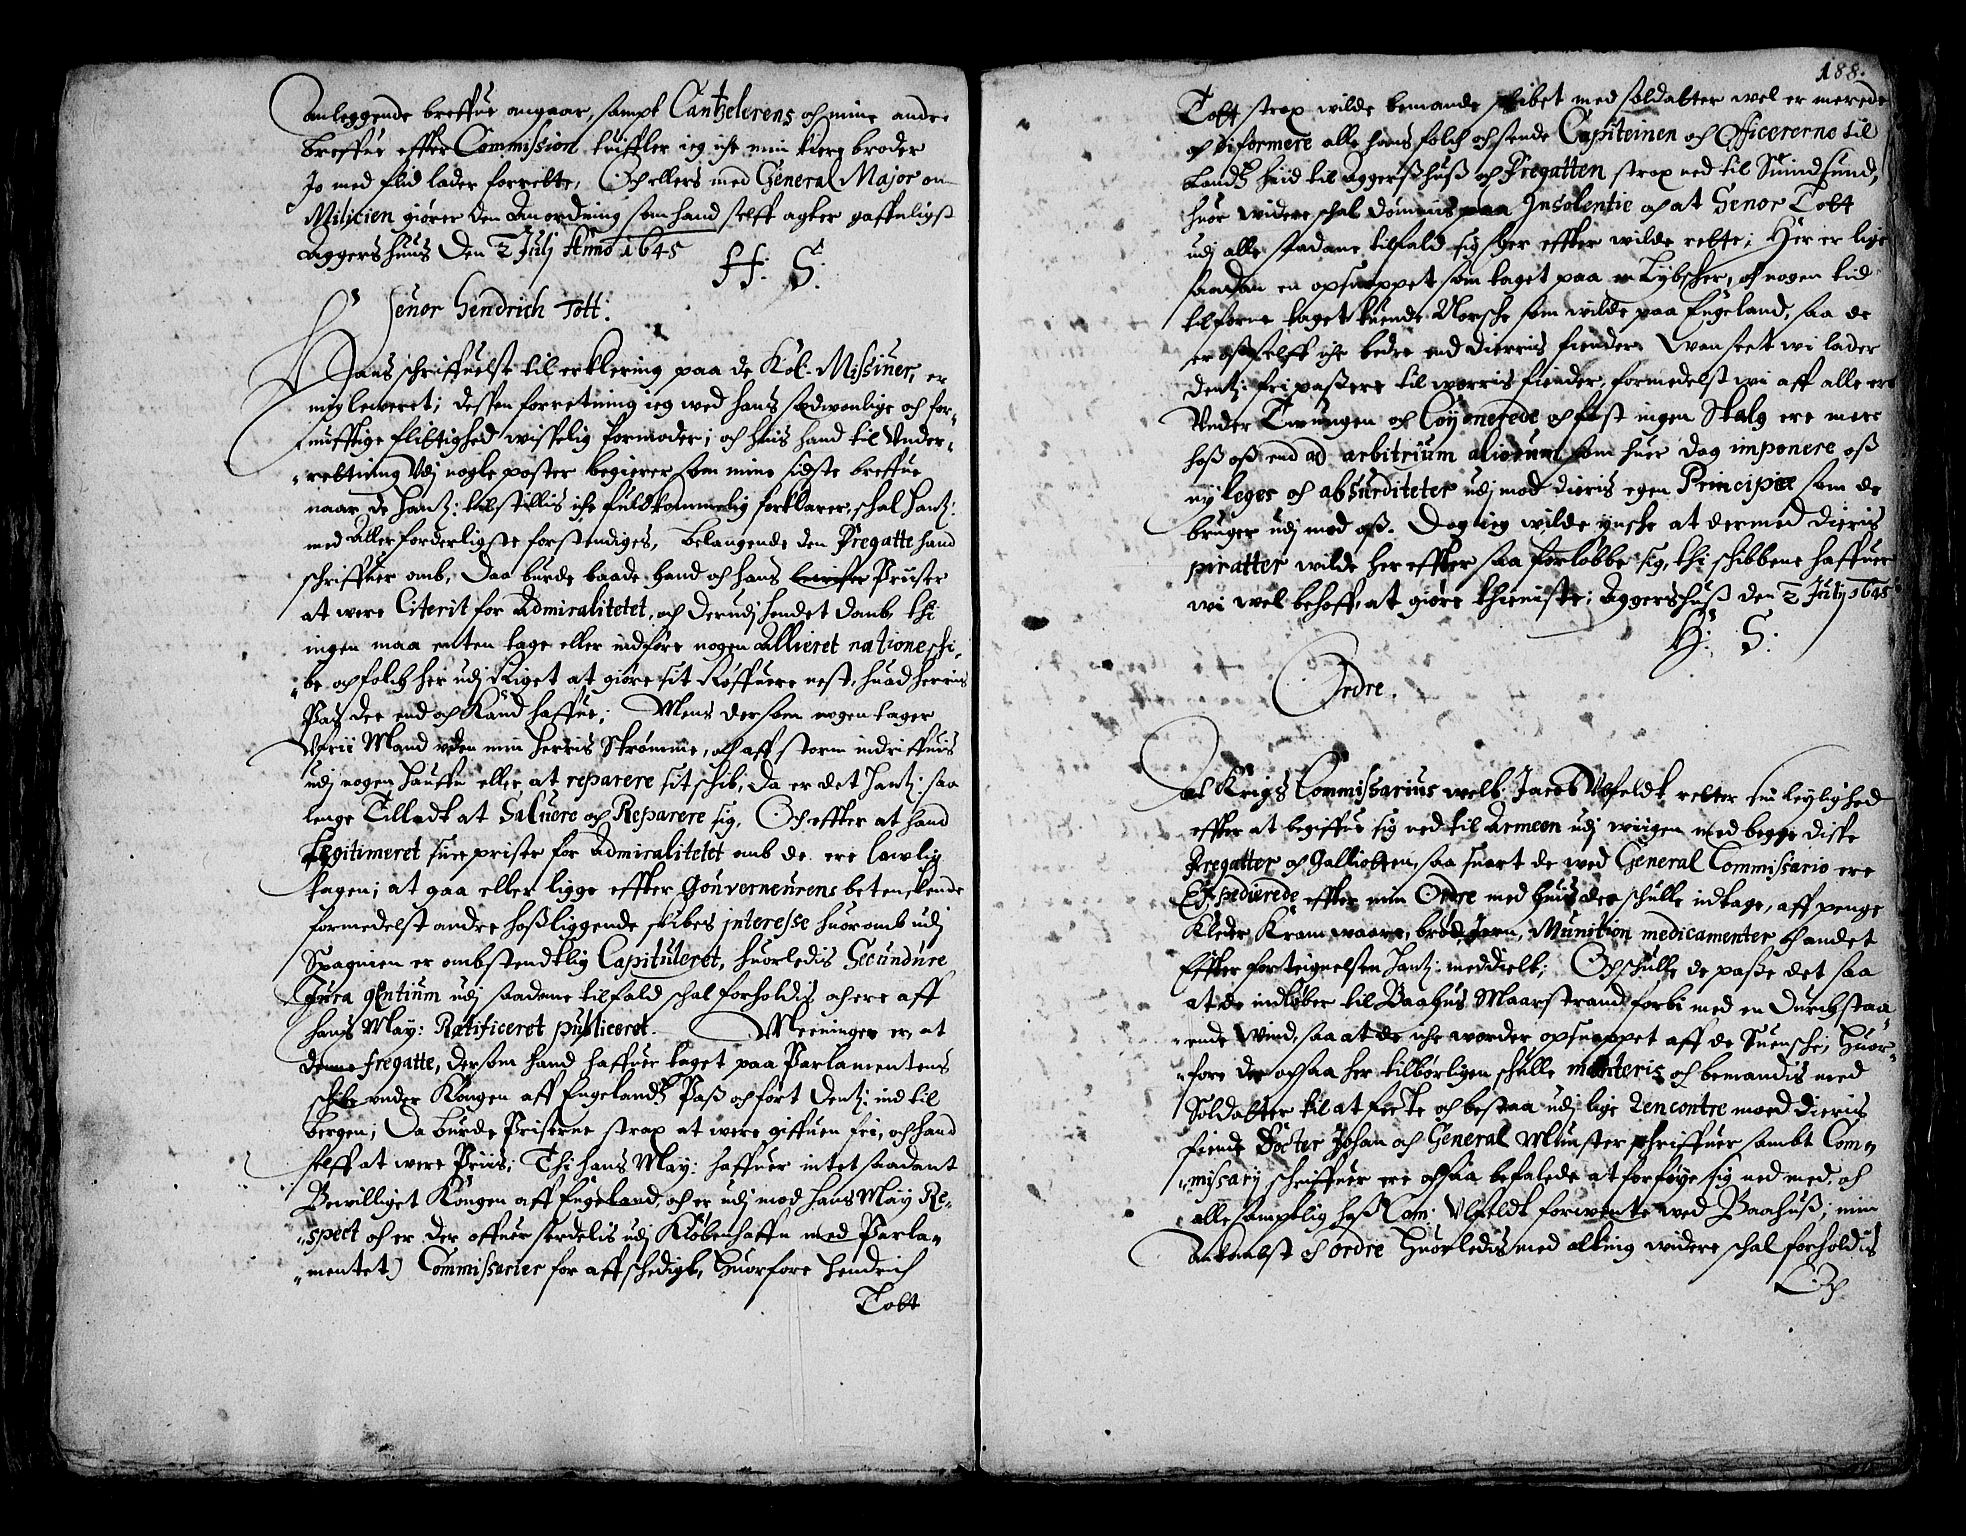 anleggende breffue angaar, sampt Cantzelerens och mine andre
breffue effter Commission tuiffler ieg iche min kiere broder
Jo med flid lader forrette, Och ellers med General Major om
Milicien giører den Anordning som hand selff agter gaffnligst
Aggershuus Den 2 Julj Anno 1645
H: S:
Senor Hendrich Tott:
Hans schriffuelse til erklering paa de Kol: Missiuer, er
mig leweret; dessen forretning ieg wed hans sædwonlige och for-
nufftige flittighed wisselig formoder; och huis hand til Under-
retning Udj nogle poster begierer som mine sidste breffue
naar de hanz: tilstillis iche fuldkommelig forklarer, schal hanz:
med Allerforderligste forstendiges, Belangende den Fregatte hand
schriffuer omb, Daa burde baade hand och hans Priser
at were Citerit for Admiralitetet, och derudj hendet domb, thi
ingen maa enten tage eller indføre nogen Allieret nations schi-
be och folch her udj Riget at giøre sit Røffuere nest, huad herris
Pas der end och Kand haffue; Mens dersom nogen tager
Orii Mand uden min herris Strømme, och aff storm indriffuis
udj nogen hauffn eller at reparere sit schib, Da er det hanz: saa
lenge Tilladt at Saluere och Reparere sig, Och effter at hand
Legitimeret sine priser for Admiralitetet omb de ere lawlig
tagen; at gaa eller ligge effter Gouverneurens betenckende
formedelst andre hoßliggende schibes interesse huoromb udj
Spagnien er ombstendtlig Capituleret, huorledis Secundum
Jura gentium udj saadane tilfald schal forholdis och ere aff
hans May: Ratificeret publiceret. Meeningen er, at
denne fregatte, dersom hand haffuer taget paa Parlamentens
schibe under Kongen aff Engelandtz Paß och fört dentz: ind til
bergen; Da burde Priserne strax at were giffuen fri, och hand
selff at were Priis; Thi hans May: haffuer intet saadant
Bewilliget Kongen aff Engeland, och er udj mod hans May Re-
spect och er der offuer serdelis udj Kiøbenhaffn med Parla-
mentet) Commissarier for affschedigt, Huorfore Hendrich
Tott
188.
Tott strax wilde bemande schibet med soldatter wel er merede
och disformere alle hans folch och sende Capiteinen och Officererne til
Landtz hiid til Aggershuß och Fregatten strax ned til Suindsund,
huor widere schal dømmis paa Insolentie och at Senor Tott
udj alle saadane tilfald sig her effter wilde rette; Her er lige
saadan en opsnappet som taget paa en Lybscher, och nogen tid
tilforne taget tuende Norsche som wilde paa Engeland, saa de
er oß selff iche bedre end dierris fiender. Uanseet wi lader
dentz: fri passere til worris fiender, formedelst wi aff alle ere
Under Twungen och Coyonerede och fast ingen Skalg ere mere
hoß oß end ad arbitrium aliorum som huer dag imponere oß
ny leges och absurditeter udj mod dieris egen Principiæ som de
bruger udj mod oß. Dog ieg wilde ynske at dermed dieris
piratter wilde her effter saa forløbbe sig, thi schibbene haffuer
wi wel behoff, at giøre thieniste; Aggershuß den 2 Julij 1645
H: S:
Ordre.
At Krigs Commissarius welb: Jacob Ulfeldt retter sin leylighed
effter at begiffue sig ned til Armeen udj wiigen med begge diße
Fregatter och Galliotten, saa snart de wed General Commissario ere
Expedierede effter min Ordre med huis der schulle indtage, aff penge
Kleder Kram waare, brød Jern, Munition medicamenter och andet
Effter forteignelsen hanz: meddielt; Och schulle de passe det saa
at de indløber til Baahus Maarstrand forbi med en Durchstaa-
ende Wind, saa at de iche worder opsnappet aff de Suensche; Huor-
fore der ochsaa her tilbørligen schulle munsteris och bemandis med
Soldatter til at fecte och bestaa udj lige Rencontre med dieris
fiende Docter Johan och General Munster schriffuer sambt Com-
missarij schriffuer ere ochsaa befalede at forføye sig ned med, och
alle samptlig hoß Com: Ulfeldt forwente wed Baahuß; min
Ankombst och ordre Huorledis med alting widere schal forholdis
Och